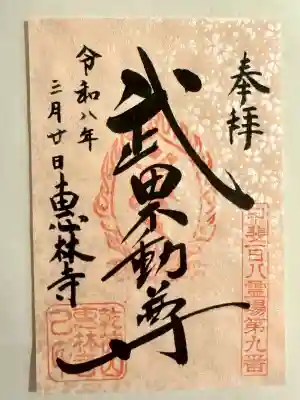 奉拝
甲斐百八霊場第九番
武田不動尊
令和八年
三月廿日
恵林寺